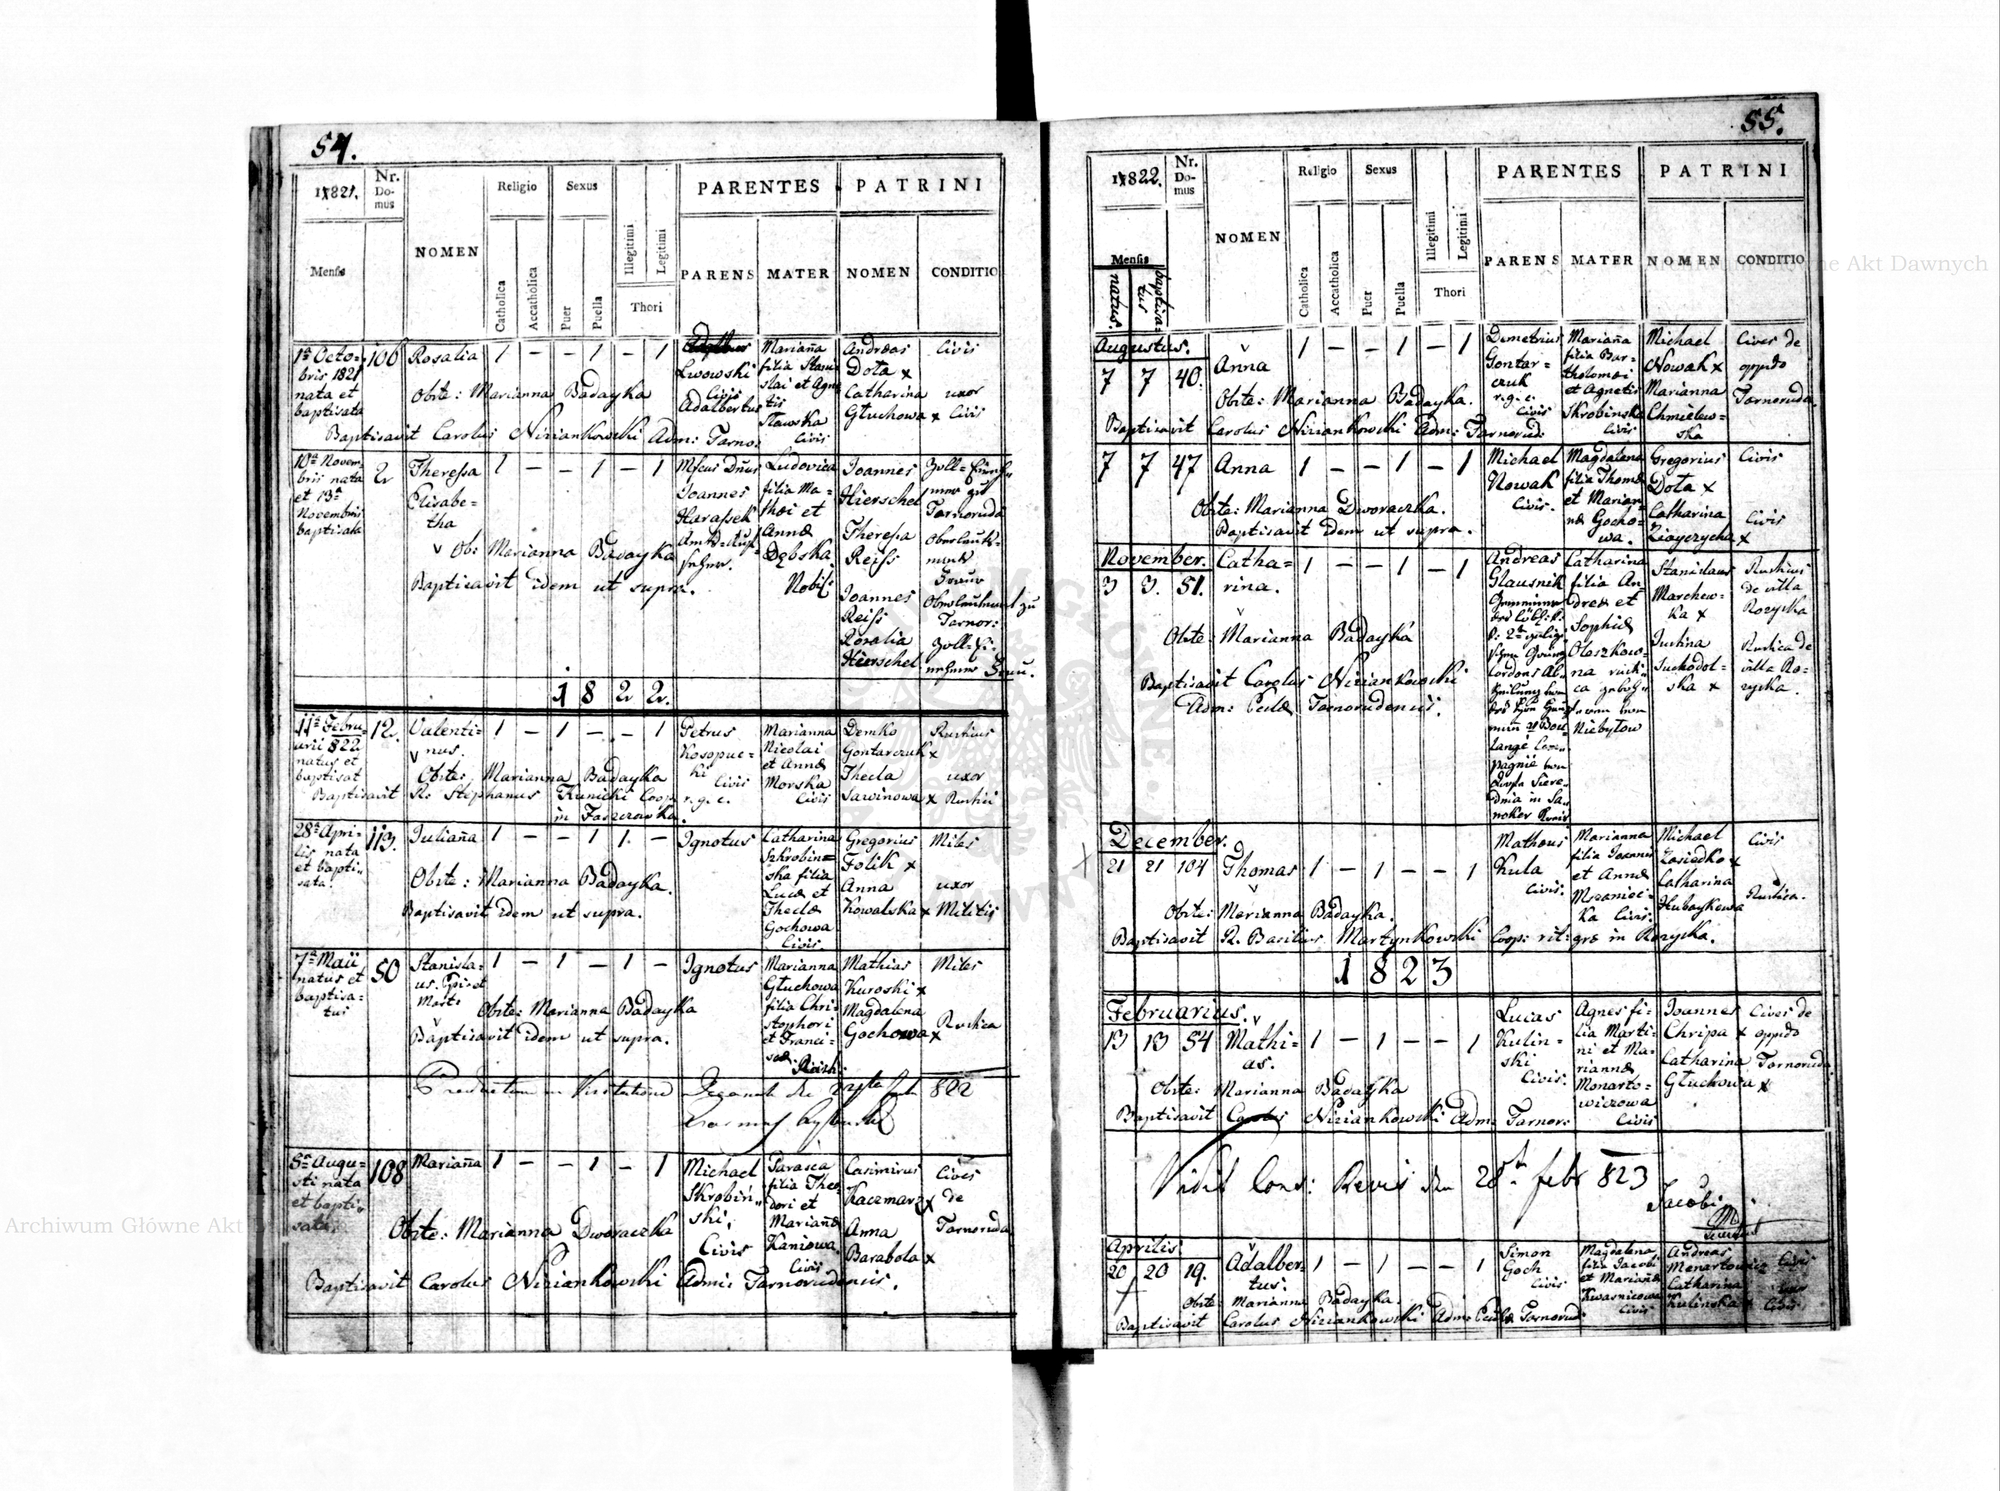 54.
1821.
Nr. Do- mus
NOMEN
Religio
Sexus
PARENTES
PATRINI
Mensis
Catholica
Accatholica
Puer
Puella
Illegitimi
Legitimi
Thori
PARENS
MATER
NOMEN
CONDITIO
1a Octo-
bris 1821
nata et
baptisata
106
Rosalia
1 — — 1 — 1
Lwowski
Civis
Adalbertus
Mariana
filia Stani
slai et Agne
tis
Slawska
Civis
Andreas
Dota x
Catharina
Głuchowa x
Civis
uxor
Civis
Obste: Marianna Badayka
Baptisavit Carolus Niziankowski Adm: Tarno:
10a Novem-
bris nata
et 13a
Novembris
baptisata
2
Theressa
Elisabe-
tha
1 — — 1 — 1
Joannes
Harassek
Ludovica
filia Ma-
thæi et
Annæ
Dębska
Nobil:
Joannes
Hierschel
Theresia
Reiss
Joannes
Reiss
Rosalia
Hierschel
Tarnoruda
Tarnor:
Obs: Marianna Badayka
Baptisavit idem ut supra.
1822.
11a Febru-
arii 822
natus et
baptisat
12.
Valenti-
nus.
1 — 1 — — 1
Petrus
Kosopuc-
ki
Civis
r. g. c.
Marianna
Nicolai
et Annæ
Morska
Civis
Demko
Gontarczuk x
Thecla
Sawinowa x
Rusticus
uxor
Rustici
Obste: Marianna Badayka
Baptisavit R. Stephanus Kunicki Coop.
in Faszczowka.
28a Apri-
lis nata
et bapti-
sata.
113.
Juliana
1 — — 1 1. —
Ignotus
Catharina
Szkrobin=
ska filia
Lucæ et
Theclæ
Gochowa
Civis
Gregorius
Folik x
Anna
Kowalska x
Miles
uxor
Militis
Obste: Marianna Badayka.
Baptisavit idem ut supra.
7a Maii
natus et
baptisa-
tus
50
Stanisla-
us. Epis et
Mart:
1 — 1 — 1 —
Ignotus
Marianna
Głuchowa
filia Chri-
stophori
et Franci-
scæ
Mathias
Kuroski x
Magdalena
Gochowa x
Miles
Rustica
Obste: Marianna Badayka
Baptisavit idem ut supra.
822
5a Augu-
sti nata
et bapti-
sata.
108
Mariana
1 — — 1 — 1
Michael
Skrobin-
ski,
Civis
Parasca
filia Theo
dori et
Marianæ
Kaniowa.
Civis
Casimirus
Kaczmarz x
Anna
Barabola x
Cives
de
Tarnoruda
Obste: Marianna Dworaczka
Baptisavit Carolus Niziankowski Admi: Tarnorudensis.
55.
1822.
Nr. Do- mus
NOMEN
Religio
Sexus
PARENTES
PATRINI
Mensis
natus.
baptisa-
tus
Catholica
Accatholica
Puer
Puella
Illegitimi
Legitimi
Thori
PARENS
MATER
NOMEN
CONDITIO
Augustus.
7 7 40.
Anna
1 — — 1 — 1
Demetrius
Gontar-
czuk
r. g. c.
Civis
Mariana
filia Bar-
tholomæi
et Agnetis
Skrobinska
Civis
Michael
Nowak x
Marianna
Chmielew-
ska
Cives de
oppido
Tarnoruda.
Obste: Marianna Badayka.
Baptisavit Carolus Niziankowski Adm: Tarnorud:
7 7 47
Anna
1 — — 1 — 1
Michael
Nowak
Civis.
Magdalena
filia Thomæ
et Marian
næ Gocho-
wa.
Gregorius
Dota x
Catharina
x
Civis
Civis
Obste: Marianna Dworaczka.
Baptisavit idem ut supra.
November.
3 3. 51.
Catha-
rina.
1 — — 1 — 1
Andreas
Glausnik
Catharina
filia An
dreæ et
Sophiæ
Oloszkow-
na
Niebylow
Stanislaus
Marchew-
ka x
Justina
Suchodol-
ska x
Rusticus
de villa
Rozycka
Rustica de
villa Ro-
zycka.
Obste: Marianna Badayka
Baptisavit Carolus Niziankowski
Adm: Eccl: Tarnorudensis.
December.
21 21 104
Thomas
1 — 1 — — 1
Matheus
Kula
Civis.
Marianna
filia Joannis
et Annæ
Civis.
Michael
Zasiedko x
Catharina
Hubaykowa
Civis
Rustica.
Obste: Marianna Badayka.
Baptisavit R. Basilius Martynkowski Coop: rit: græ in Rozycka.
1823
Februarius.
13 13 54
Mathi-
as.
1 — 1 — — 1
Lucas
Kulin-
ski
Civis.
Agnes fi-
lia Marti-
ni et Ma-
riannæ
Monarto-
wiczowa
Civis
Joannes
Chripa x
Catharina
Głuchowa x
Cives de
oppido
Tarnoruda.
Obste: Marianna Badayka
Baptisavit Carolus Niziankowski Adm: Tarnor:
Vidit Revis 28t febr 823
Jacobi
Aprilis
20 20 19.
Adalber-
tus.
1 — 1 — — 1
Simon
Goch
Civis
Magdalena
filia Jacobi
et Marianæ
Kwasnicowa
Civis
Andreas
Menartowicz
Catharina
Kulinska x
Civis
uxor
Civis
Obste: Marianna Badayka.
Baptisavit Carolus Niziankowski Adm: Eccl: Tarnorud:
Archiwum Główne Akt Dawnych
Archiwum Główne Akt Dawnych